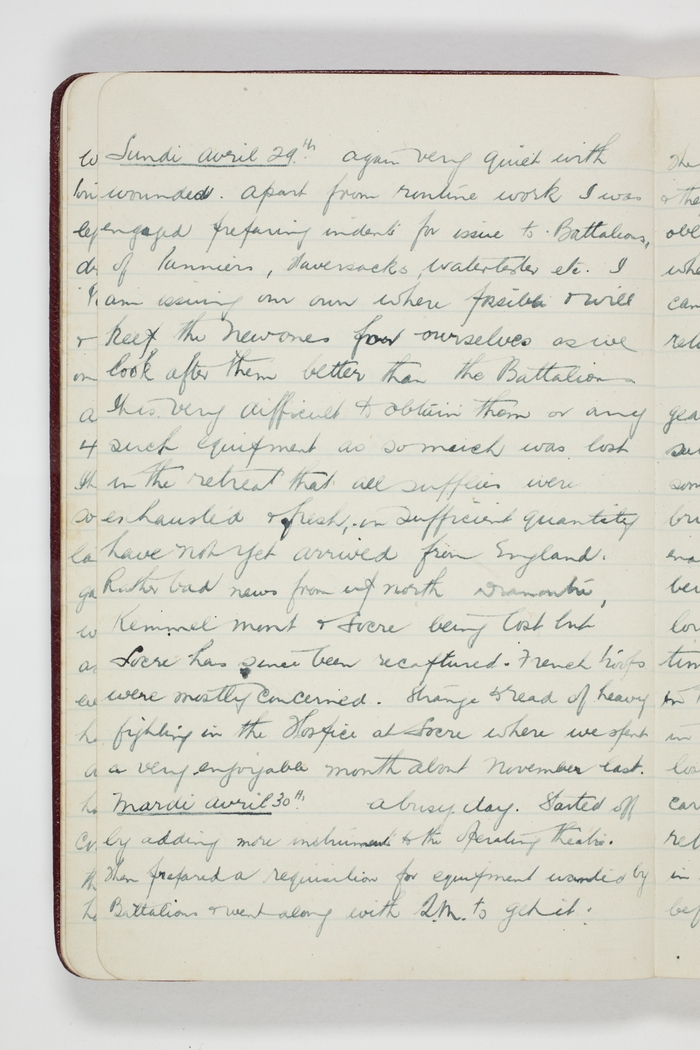 Lundi avril 29th again very quiet with
wounded. Apart from routine work I was
engaged preparing indents for issue to Battalions,
of Panniers, Haversacks, watertester etc. I
am issuing our own where possible & will
keep the new ones for ourselves as we
look after them better than the Battalions
It is very difficult to obtain them or any
such equipment as so much was lost
in the retreat that all supplies were
exhausted & fresh, in sufficient quantity
have not yet arrived from England.
Rather bad news from up north
Kemmel mont & Locre being lost but
Locre has since been recaptured. French troops
were mostly concerned. Strange to read of heavy
fighting in the Hospice at Locre where we spent
a very enjoyable month about November last.
Mardi avril 30th a busy day. Started off
by adding more instruments to the Operating theatre.
Then prepared a requisition for equipment wanted by
Battalions & went along with Q.M. to get it.